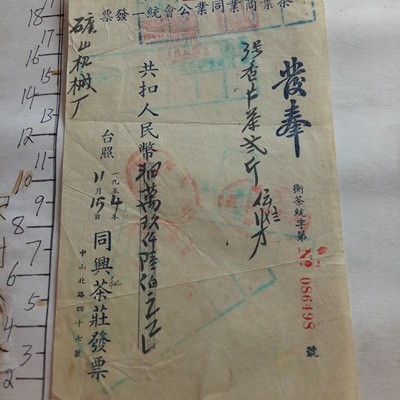 茶業商業同業公會統一發票
發奉
衡茶統字第
№ 086498
號
香片茶弍斤
共扣人民幣 萬玖仟陸佰 正
台照
一九五4年
11月15日
同興茶莊發票
中山北路四十七號
矿山机械厂
18
17
16
15
14
13
12
11
10
9
8
7
6
5
4
3
2